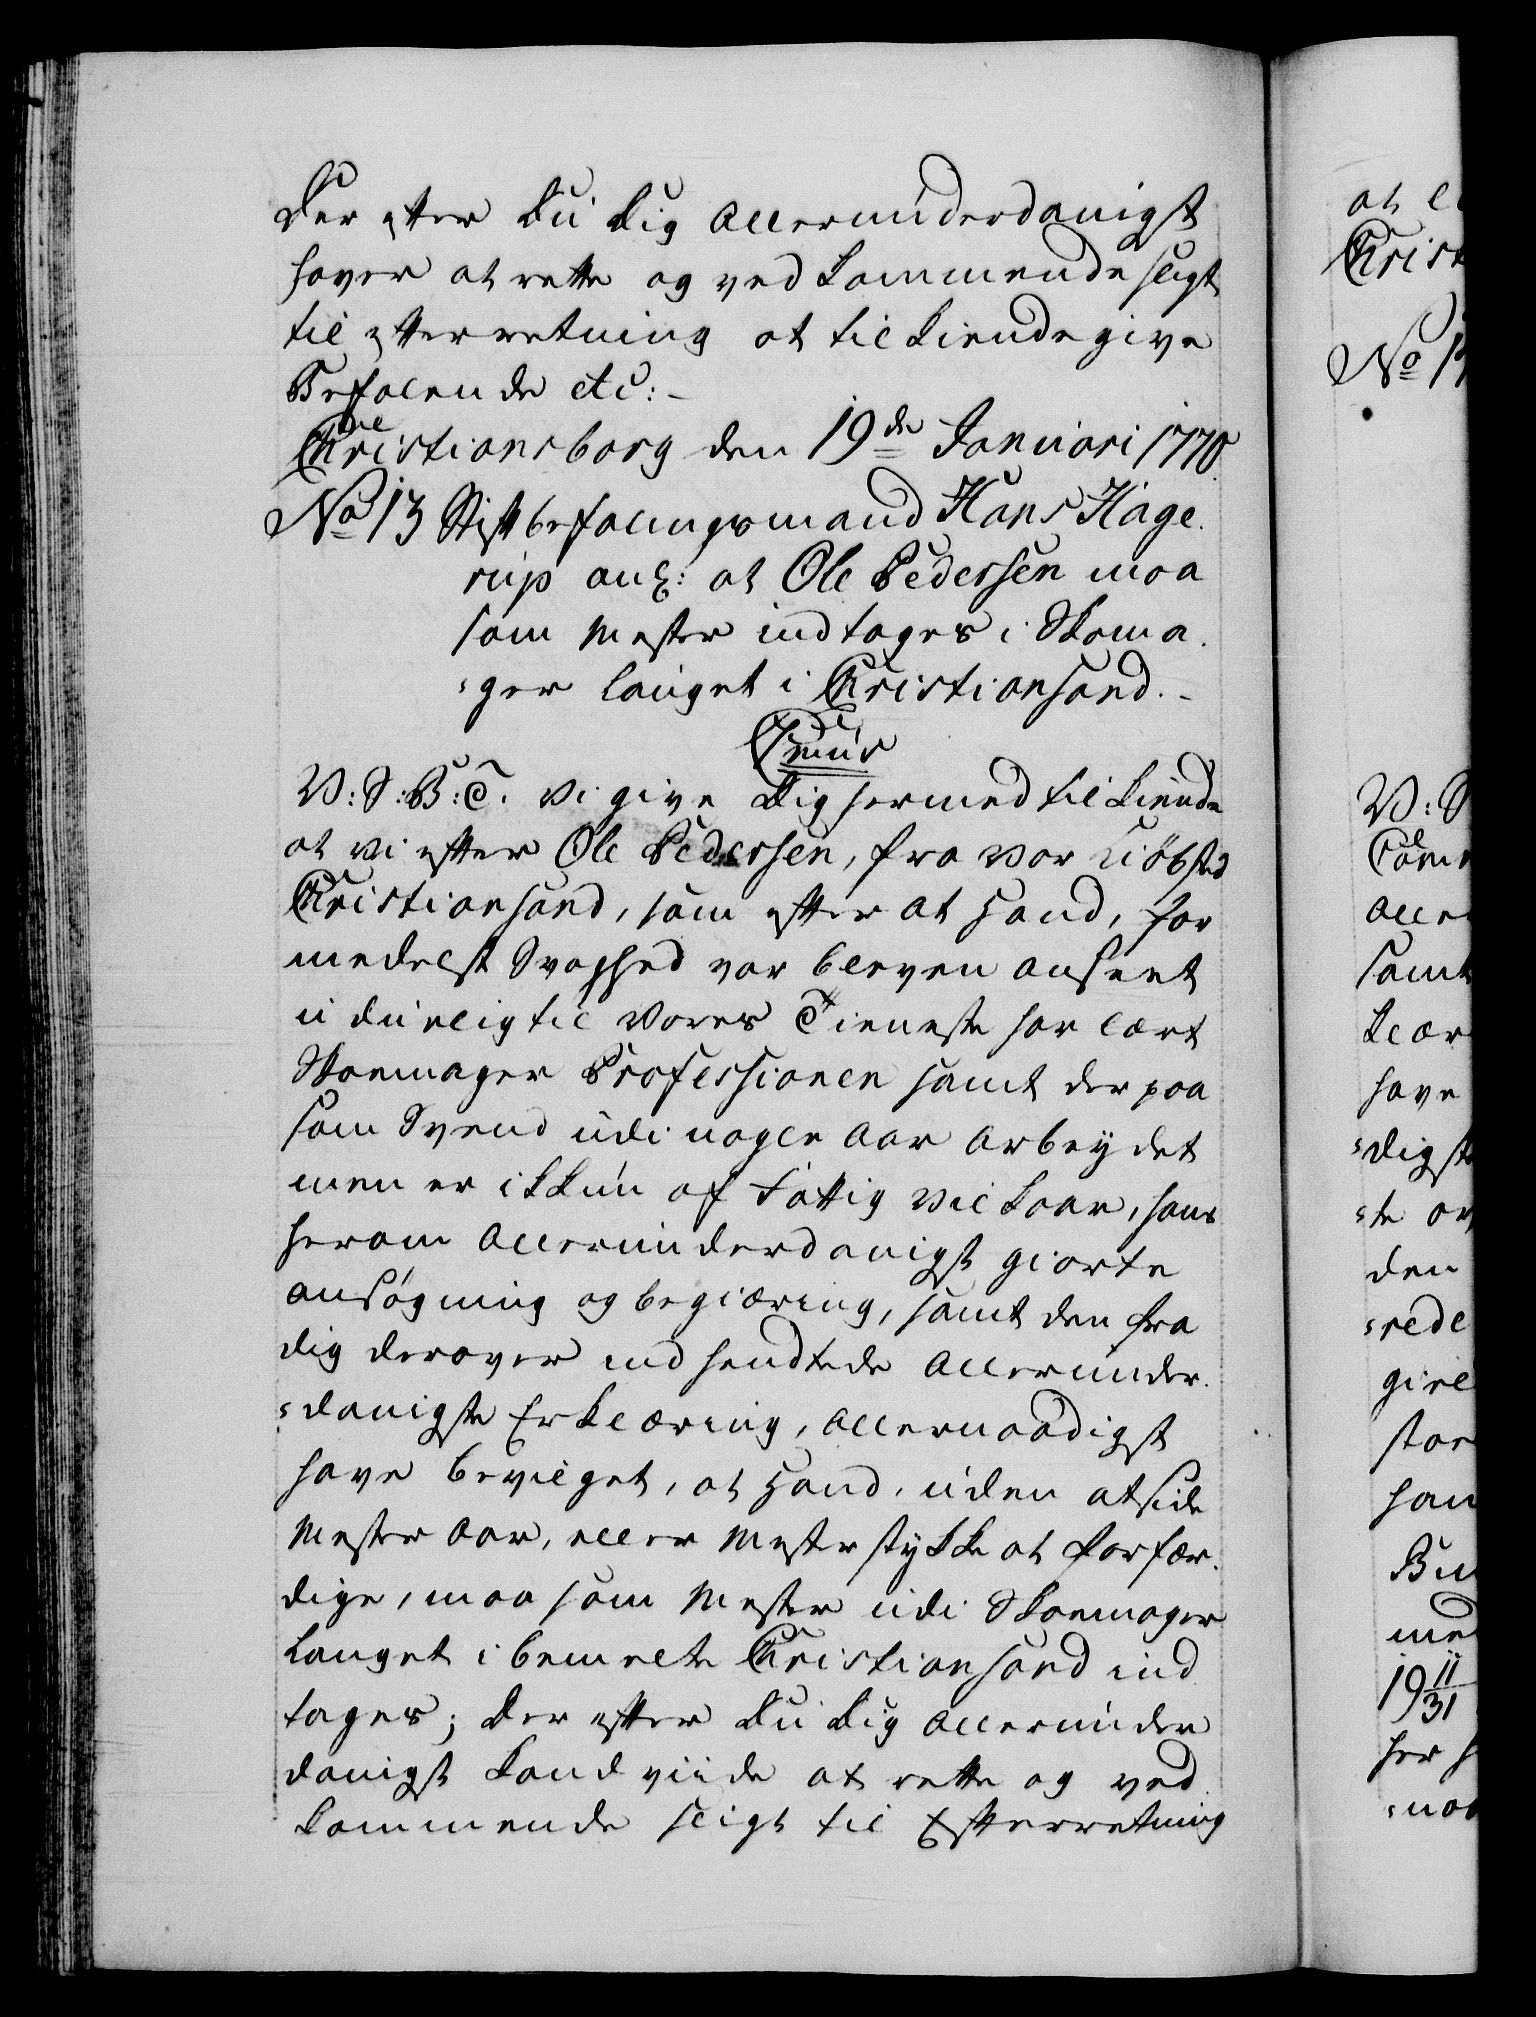 Der efter Du Dig Allerunderdanigst
haver at rette og ved kommende sligt
til efterretning at til kiende give
Befalende etc: -
Christiansborg den 19de Januari 1770
No 13 Stiftbefalingsmand Hans Hage
rup anl: at Ole Pedersen maa
som Mester indtages i Skoma
ger lauget i Christiansand. -
C7mus
V: S: B: T. Vi give Dig hermed til kiende
at vi efter Ole Pedersen, fra vor kiöbsted
Christiansand, som efter at hand, for
medelst Svaghed var bleven anseet
u duelig til Vores Tieneste har lært
Skoemager Professionen samt der paa
som Svend udi nogle Aar Arbeydet
men er ikkun af fattig vilkaar, hans
herom Allerunderdanigst giorte
ansøgning og begiæring, samt den fra
dig derover ind sendte de Allerunder
danigste Erklæring, Allernaadigst
have bevilget, at hand, uden at side
Mester Aar, eller Mesterstykke at forfær
dige, maa som Mester udi Skoemager
Lauget i bemelte Christiansand ind
tages; Der efter Du Dig Allerunder
danigst kand viide at rette og ved
kommende sligt til Efterretning
at l
Christ
No 1
V: S
Com
Alle
samt
klær
have
digst
te or
den
rede
give
stor
han
Bu
me
19 11/31
her h
naa